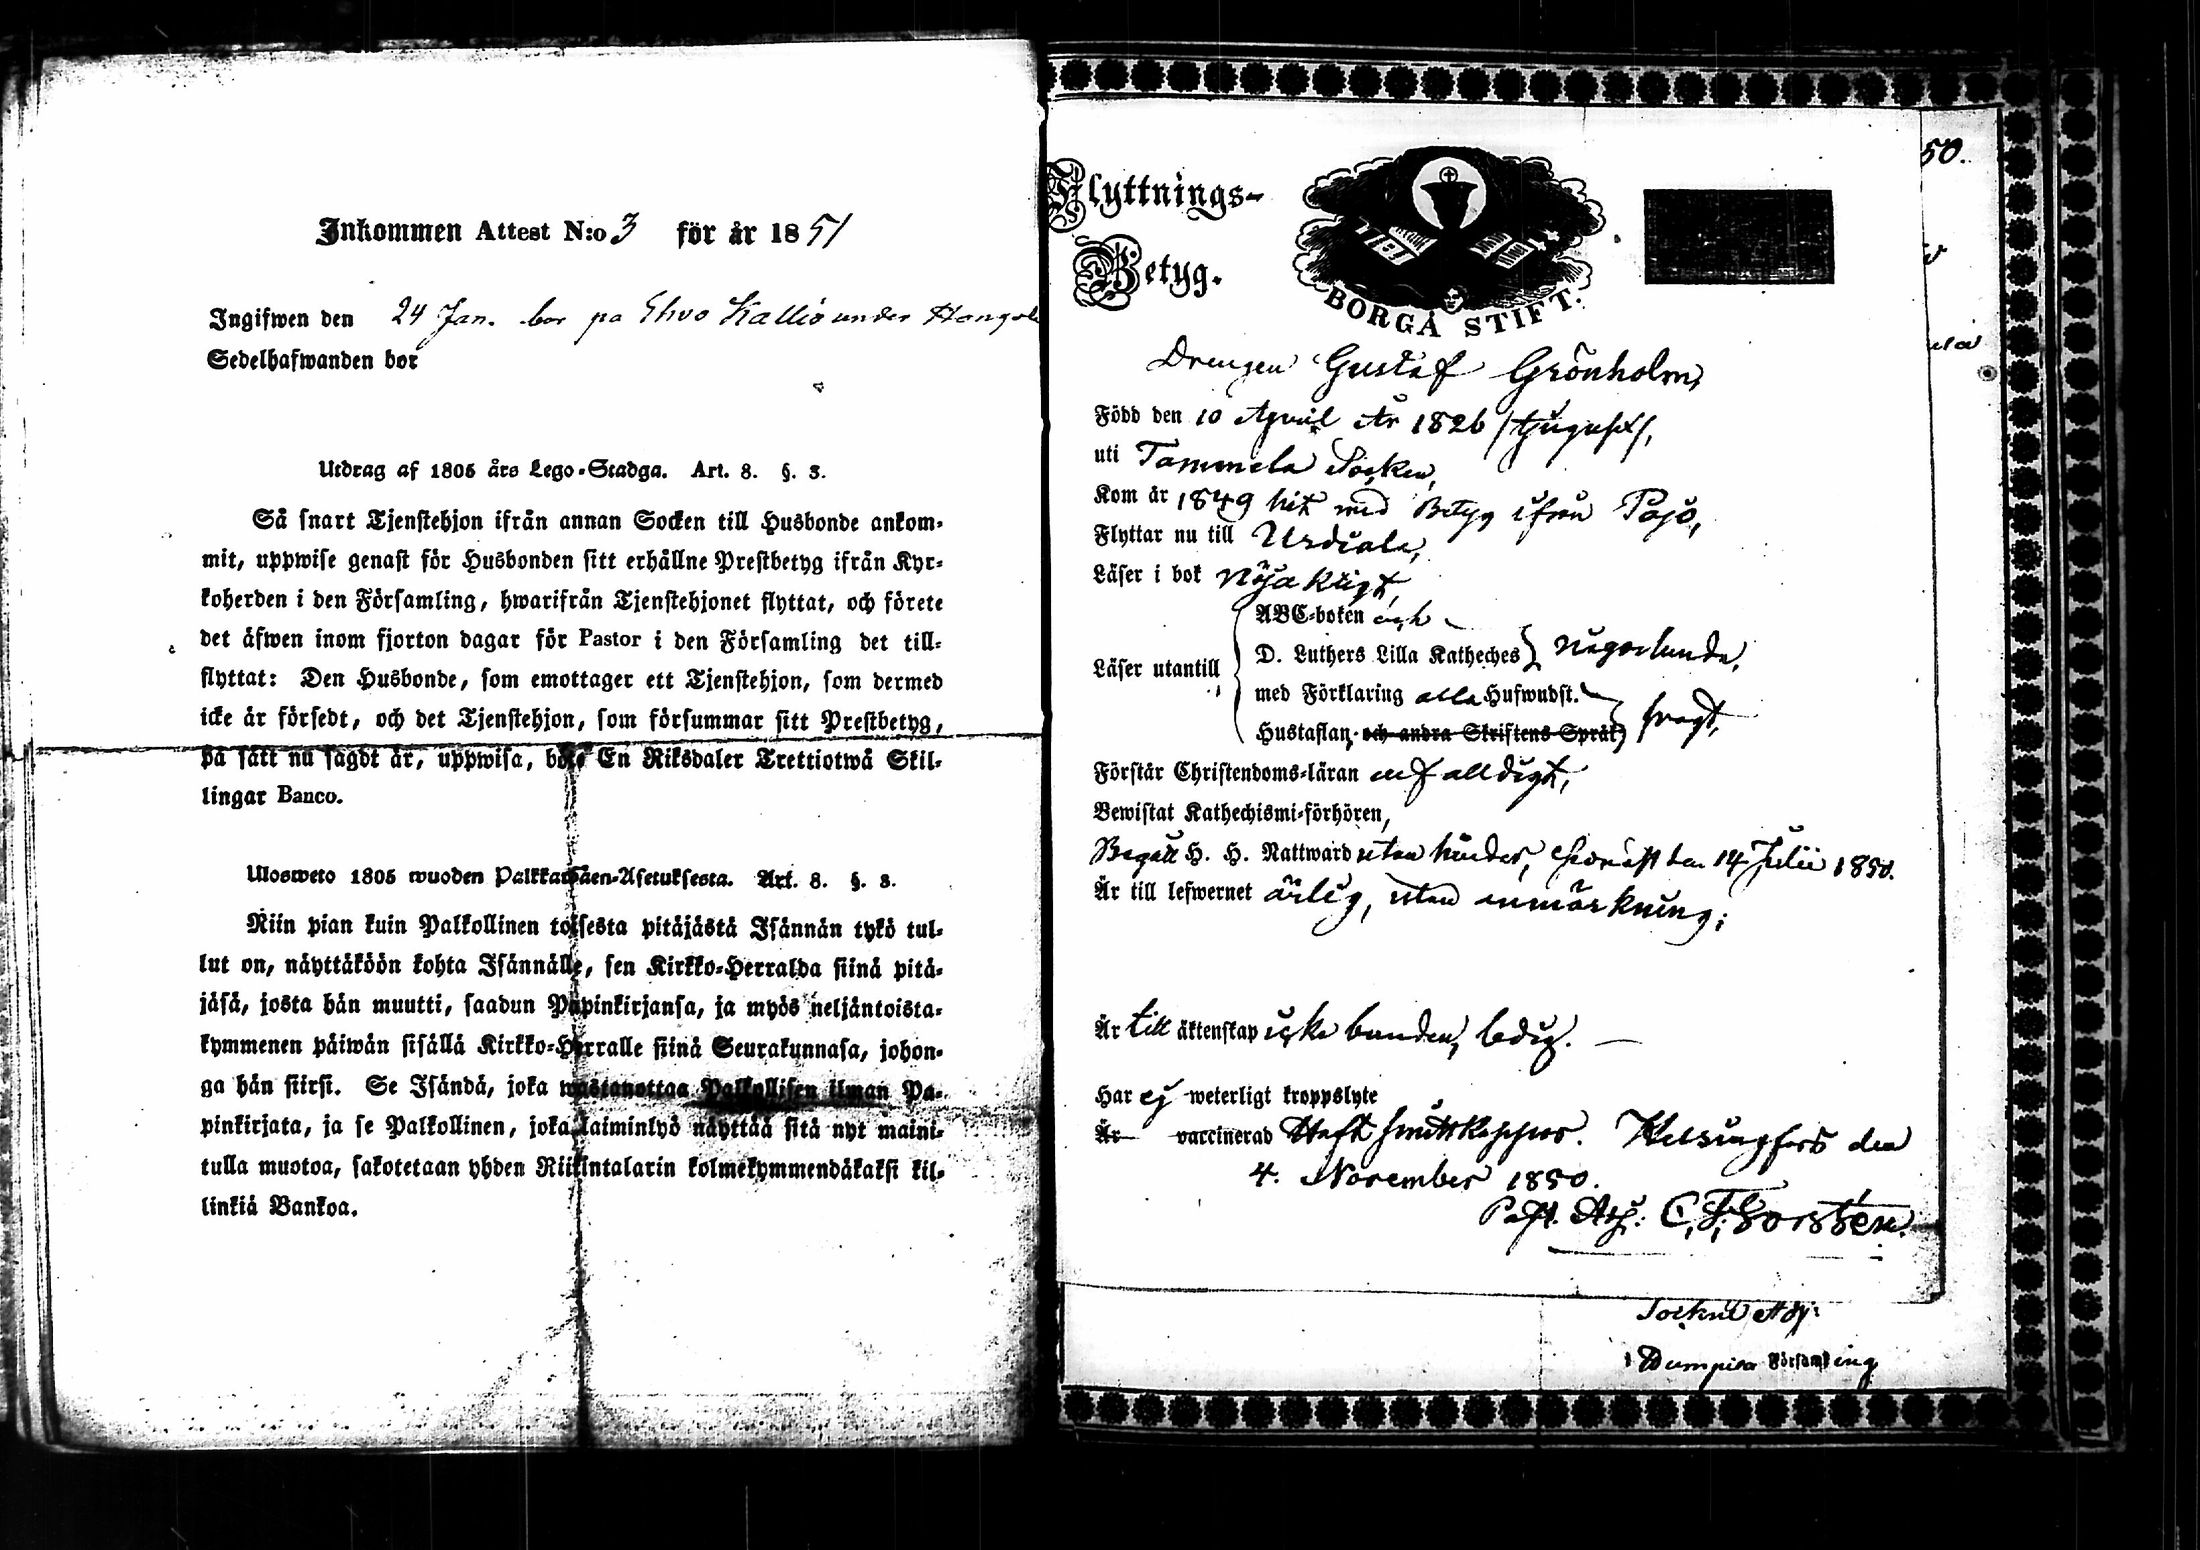 Inkommen Attest N:o 3 för år 1851
Ingifwen den 24 Jan. bor på Kallio under
Sedelhafwanden bor
Utdrag af 1805 års Lego-Stadga. Art. 8. §. 3.
Så snart Tjenstehjon ifrån annan Socken till Husbonde ankom-
mit, uppwise genast för Husbonden sitt erhållne Prestbetyg ifrån Kyr-
koherden i den Församling, hwarifrån Tjenstehjonet flyttat, och förete
det äfwen inom fjorton dagar för Pastor i den Församling det till-
flyttat: Den Husbonde, som emottager ett Tjenstehjon, som dermed
icke är försedt, och det Tjenstehjon, som försummar sitt Prestbetyg,
på sätt nu sagdt är, uppwisa, böte En Riksdaler Trettiotwå Skil-
lingar Banco.
Ulosweto 1805 wuoden Palkkawäen-Asetuksesta. Art. 8. §. 3.
Niin pian kuin Palkollinen toisesta pitäjästä Isännän tykö tul-
lut on, näyttäköön kohta Isännälle, sen Kirkko-Herralda siinä pitä-
jäsä, josta hän muutti, saadun Papinkirjansa, ja myös neljäntoista-
kymmenen päiwän sisällä Kirkko-Herralle siinä Seurakunnasa, johon-
ga hän siirsi. Se Isändä, joka wastanottaa Palkollisen ilman Pa-
pinkirjata, ja se Palkollinen, joka laiminlyö näyttää sitä nyt maini-
tulla muotoa, sakotetaan yhden Riikintalarin kolmekymmendäkaksi kil-
linkiä Bankoa.
Flyttnings-
Betyg.
BORGÅ STIFT.
50.
Drengen Gustaf Grönholm,
Född den 10 April År 1826 /tjugusex/,
uti Tammela Socken,
Kom år 1849 hit med Betyg ifrån Pojo,
Flyttar nu till Urdiala,
Läser i bok nöjaktigt,
ABC-boken och
Läser utantill D. Luthers Lilla Katheches någorlunda,
med Förklaring alla Hufwudst.
Hustaflan och andra Skriftens Språk svagt,
Förstår Christendoms-läran enfalldigt,
Bewistat Kathechismi-förhören,
Begått H. H. Nattward utan hinder, sednast den 14 Julii 1850.
Är till lefwernet ärlig, utan anmärkning;
Är till äktenskap icke bunden, ledig.
Har ej weterligt kroppslyte
Är vaccinerad Haft smittkoppor. Helsingfors den
4. November 1850.
Past. Adj: C. F. Forstén.
Socken Adj:
i Församling